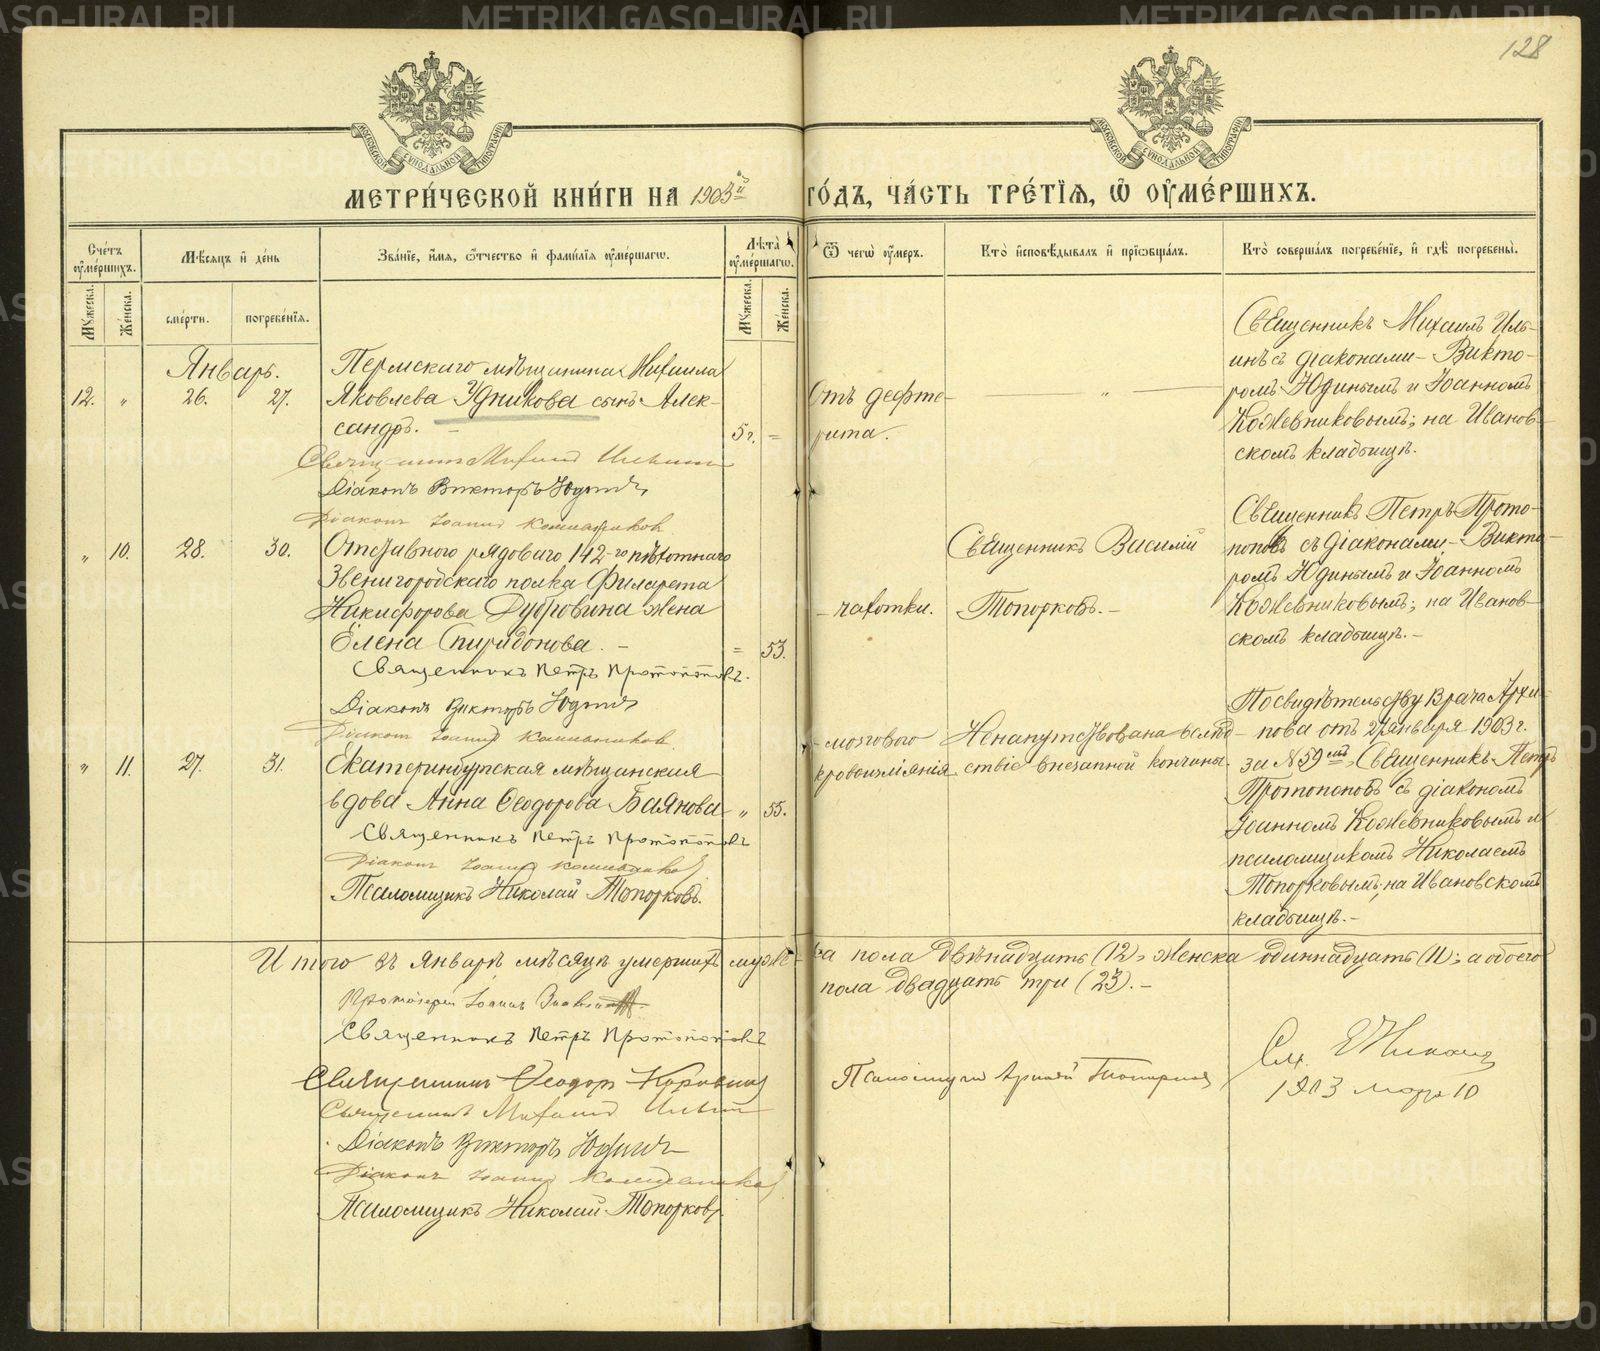 128
МЕТРИ́ЧЕСКОЙ КНИ́ГИ НА 1903й ГО́ДЪ, ЧА́СТЬ ТРЕ́ТІѦ, Ѡ ОУМЕ́РШИХЪ.
Счетъ оумершихъ.
Мужеска.
Женска.
Мѣсяцъ и день
смерти.
погребенія.
Званіе, имя, отчество и фамилія оумершагѡ.
Лѣта оумершагѡ.
Мужеска.
Женска.
Ѿ чегѡ оумеръ.
Кто исповѣдывалъ и пріобщалъ.
Кто совершалъ погребеніе, и гдѣ погребены.
Январь.
12. " 26. 27.
Пермскаго мѣщанина Михаила
Яковлева Удникова сынъ Алек-
сандръ. –
5 г. =
Отъ дефте-
рита.
Священникъ Михаилъ Иль-
инъ съ діаконами – Викто-
ромъ Юдинымъ и Іоанномъ
Кожевниковымъ; на Иванов-
скомъ кладбищѣ.
Священникъ Михаилъ Ильинъ
Діаконъ Викторъ Юдинъ
Діаконъ Іоаннъ
" 10. 28. 30.
Отставного рядоваго 142-го пѣхотнаго
Звенигородскаго полка Филарета
Никифорова Дубровина жена
Елена Спиридонова. –
= 53.
– чахотки.
Священникъ Василій
Топорковъ. –
Священникъ Петръ Прото-
поповъ съ діаконами – Викто-
ромъ Юдинымъ и Іоанномъ
Кожевниковымъ; на Иванов-
скомъ кладбищѣ. –
Священникъ Петръ Протопоповъ.
Діаконъ Викторъ Юдинъ
Діаконъ Іоаннъ
" 11. 27. 31.
Екатеринбургская мѣщанская
вдова Анна Ѳеодорова Баянова
" 55.
– мозгового
кровоизліянія
Ненапутствована вслѣд-
ствіе внезапной кончины.
По свидѣтельству врача Архи-
пова отъ 29 января 1903 г.
за № 59мъ, Священникъ Петръ
Протопоповъ съ діакономъ
Іоанномъ Кожевниковымъ и
псаломщикомъ Николаемъ
Топорковымъ; на Ивановскомъ
кладбищѣ. –
Священникъ Петръ Протопоповъ
Діаконъ Іоаннъ
Псаломщикъ Николай Топорковъ.
Итого въ январѣ мѣсяцѣ умершихъ мужеска пола двѣнадцать (12), женска одиннадцать (11); а обоего
пола двадцать три (23). –
Протоіерей Іоаннъ
Священникъ Петръ Протопоповъ
Священникъ Ѳеодоръ
Священникъ Михаилъ Ильинъ
Діаконъ Викторъ Юдинъ
Діаконъ Іоаннъ
Псаломщикъ Николай Топорковъ.
1903 марта 10
METRIKI.GASO-URAL.RU